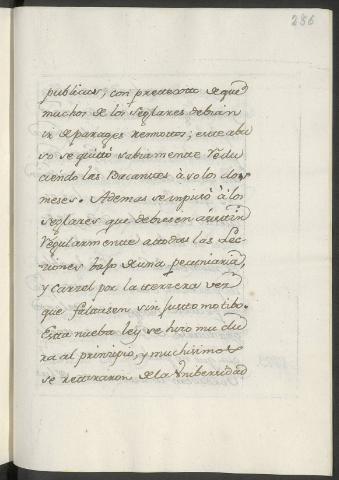 286
publicas, con pretexto de que
muchos de los seglares debian
ir de parages remotos; este abu
so se quitó sabiamente redu
ciendo las Bacantes à solos dos
meses. Ademas se impuso à los
seglares que debiesen asistir
regularmente a todas las Lec
ziones bajo de una pecuniaria,
y carzel por la terzera vez
que faltasen sin justo motibo.
Esta nueba ley se hizo mui du
ra al prinzipio, y muchisimos
se retiraron de la Unibersidad